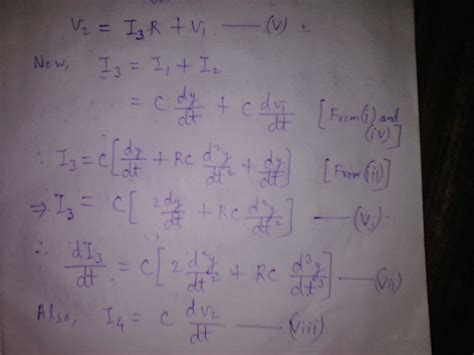 V₂ = I₃R + V₁ —— (V).
Now, I₃ = I₁ + I₂
= C dy/dt + C dv₁/dt [From (i) and (iv)]
∴ I₃ = C[dy/dt + RC d²y/dt² + dy/dt] [From (ii)]
⇒ I₃ = C[2dy/dt + RC d²y/dt²] —— (Vi)
∴ dI₃/dt = C[2 d²y/dt² + RC d³y/dt³] —— (vii)
Also, I₄ = C dv₂/dt —— (viii)